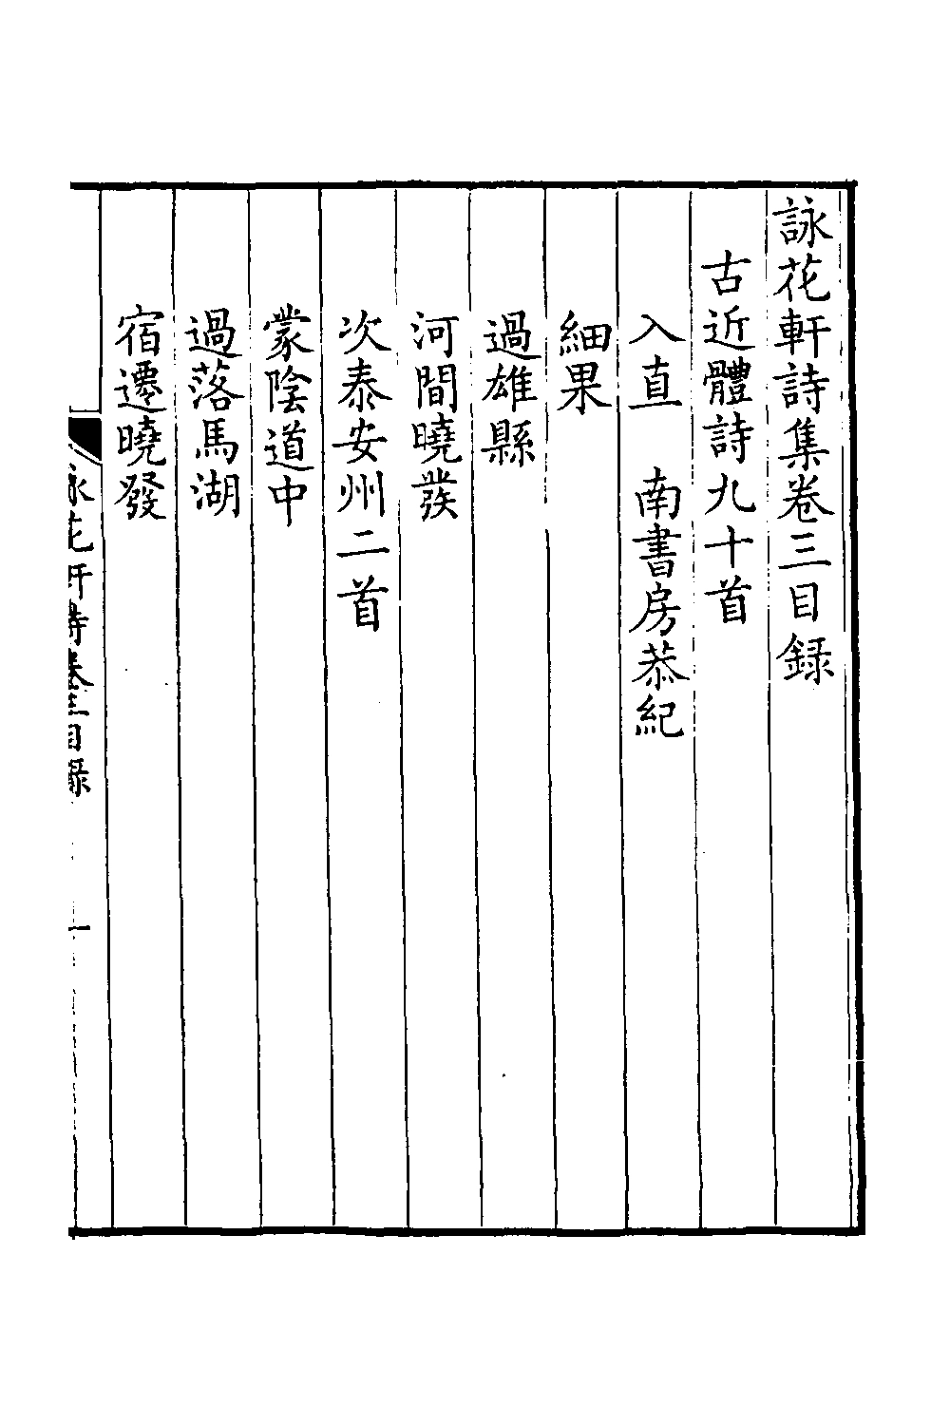 詠花軒詩集卷三目録
古近體詩九十首
入直　南書房恭紀
細果
過雄縣
河間曉發
次泰安州二首
蒙陰道中
過落馬湖
宿遷曉發
詠花軒詩卷三目録
一